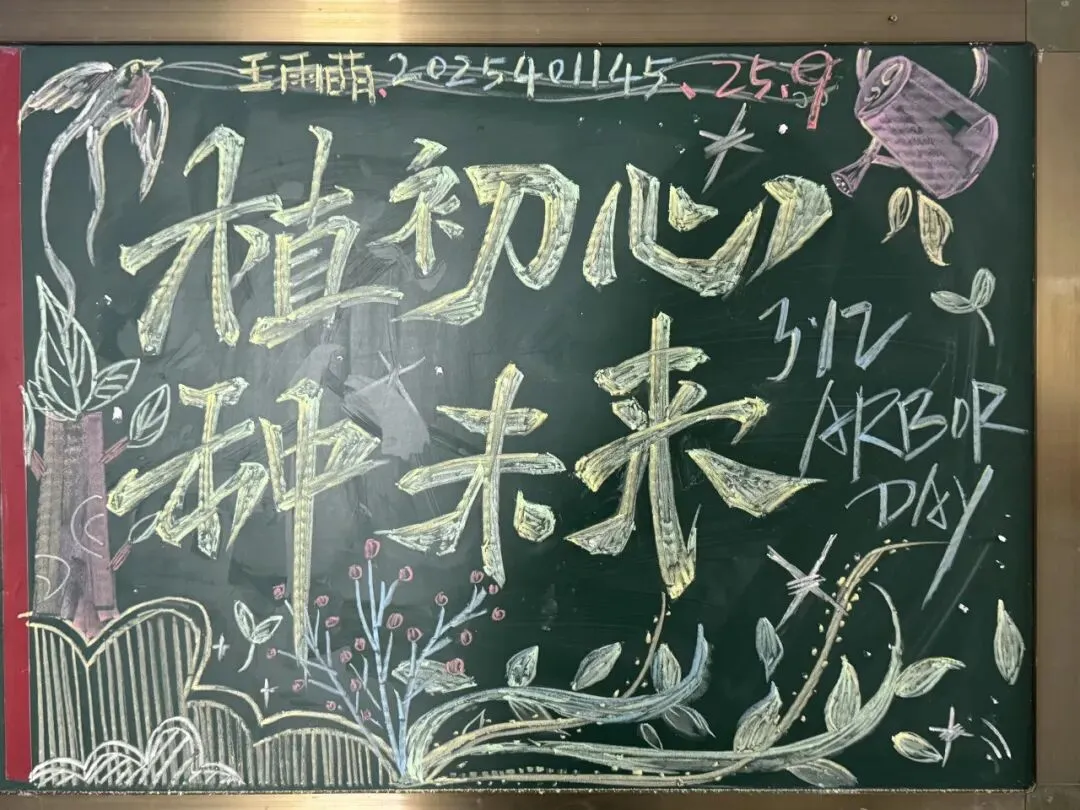 王雨萌、2025401145、25.9
植初心
种未来
3.12
ARBOR
DAY